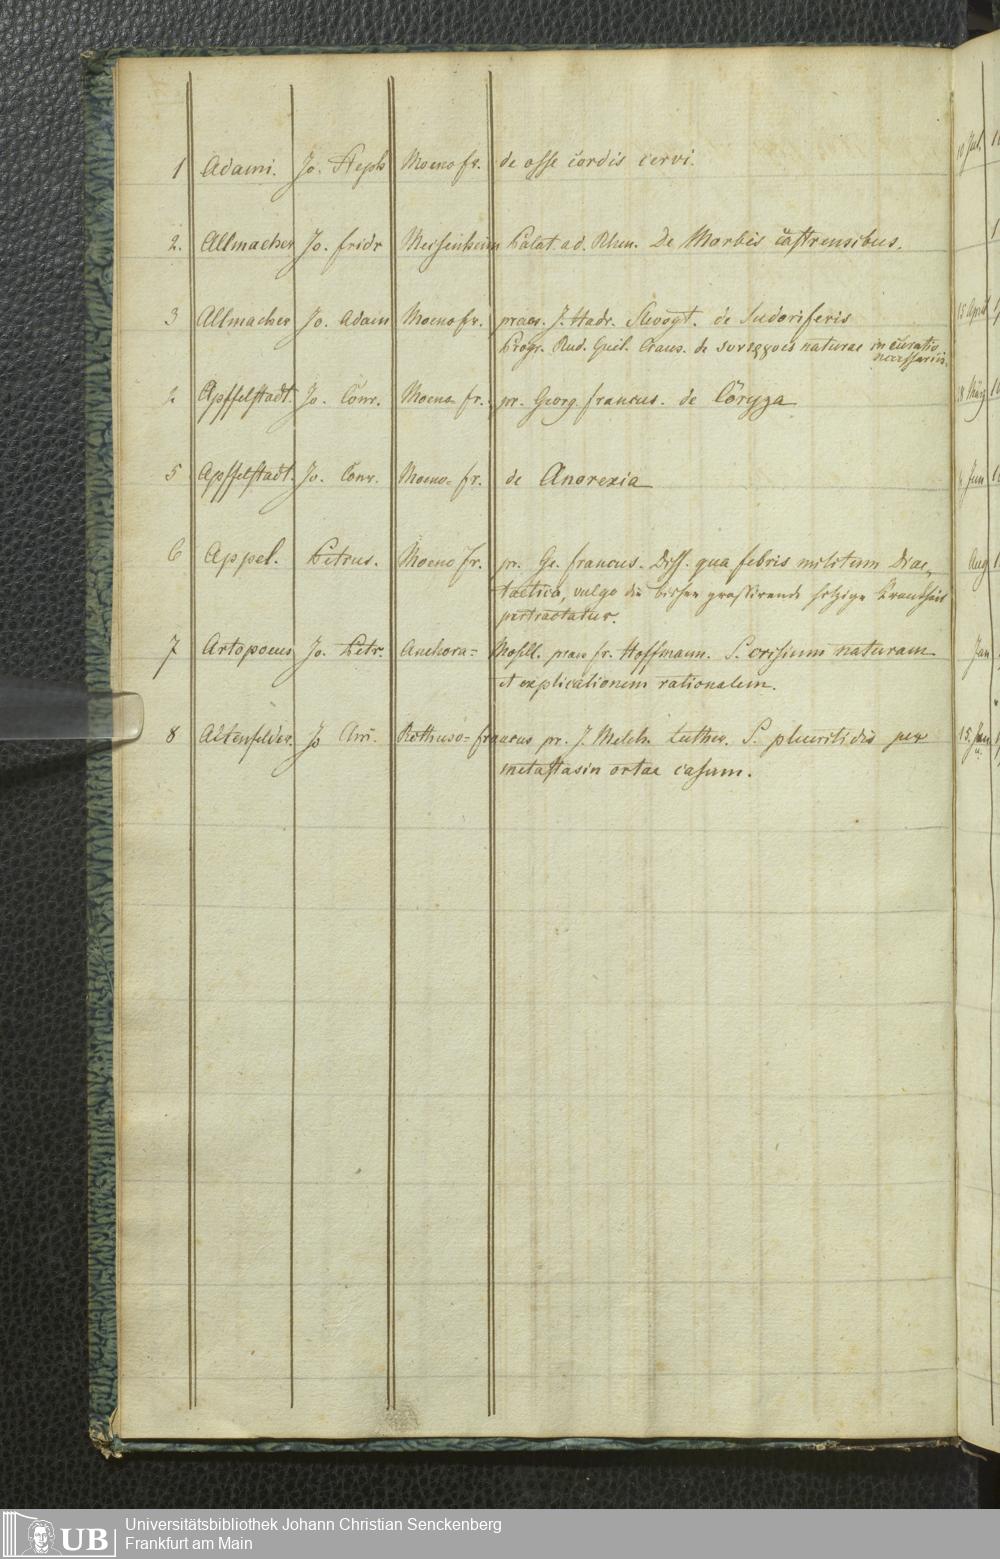 1 Adami. Jo. Steph Moenofr. de osse cordis cervi. 10 Jul.
2. Allmacher Jo. fridr Meisenheim Palat. ad. Rhen. De Morbis castrensibus.
3 Allmacher Jo. Adam Moenofr. praes. J. Hadr. Slevogt. de Sudoriferis 15 April
Progr. Rud. Guil. Craus. de naturae in curatio
necessariis.
Apffelstadt. Jo. Conr. Moeno-fr. pr. Georg francus. de Coryza
5 Apffelstadt. Jo. Conr. Moeno-fr. de Anorexia Jun
6 Appel. Petrus. Moeno fr. pr. Ge. francus. Diss. qua febris militum Diae,
taetica, vulgo die bisher grassirende hitzige Krankheit Aug
pertractatur.
7 Artopoeus Jo. Petr. Anchora= Mosell. praes fr. Hoffmann. S. crisium naturam Jan
et explicationem rationalem.
8 Altenfelder. Jo Chri. Rothuso=francus pr. J. Melch. Luther. S. pleuritidis per 15. Jan
metastasin ortae casum.
UB
Universitätsbibliothek Johann Christian Senckenberg
Frankfurt am Main